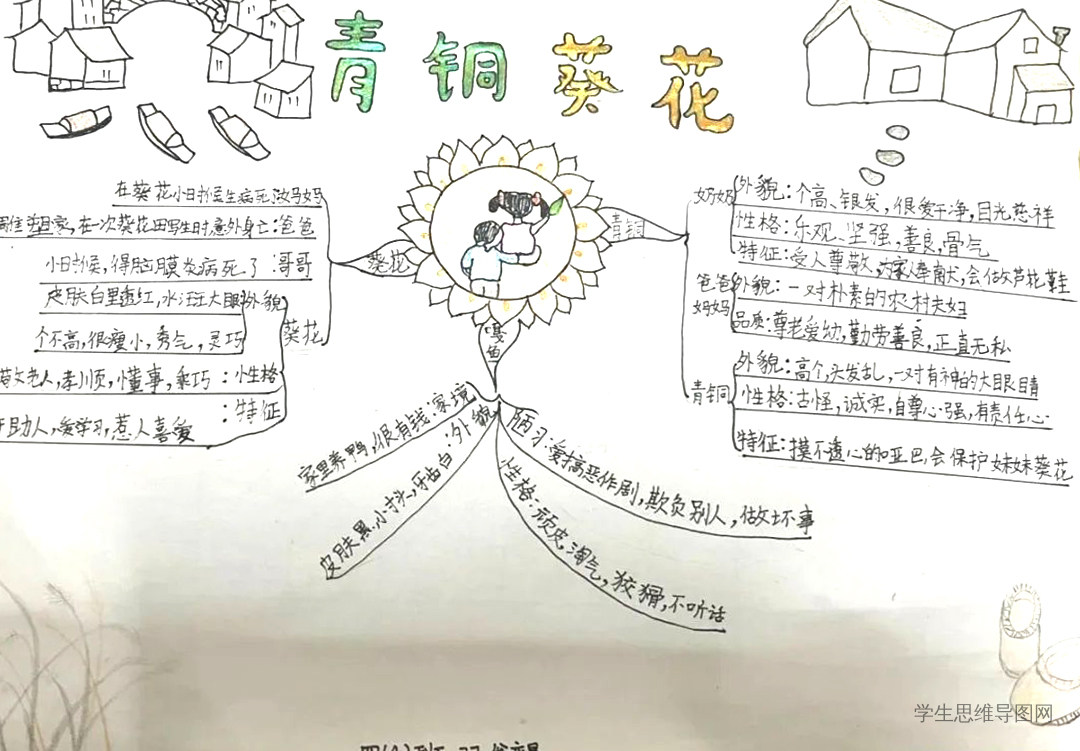 青铜葵花
葵花
在葵花小时候生病死了:妈妈
在一次葵花田写生时,意外身亡:爸爸
小时候,得脑膜炎病死了:哥哥
葵花
皮肤白里透红,水汪汪大眼:外貌
个不高,很瘦小,秀气,灵巧
老人,孝顺,懂事,乖巧:性格
助人,爱学习,惹人喜爱:特征
青铜
奶奶
外貌:个高、银发,很爱干净,目光慈祥
性格:乐观、坚强,善良,骨气
特征:受人尊敬,为家人奉献,会做芦花鞋
爸爸妈妈
外貌:一对朴素的农村夫妇
品质:尊老爱幼,勤劳善良,正直无私
青铜
外貌:高个,头发乱,一对有神的大眼睛
性格:古怪,诚实,自尊心强,有责任心
特征:摸不透心的哑巴,会保护妹妹葵花
嘎鱼
家里养鸭,很有钱:家境
皮肤黑,小扌头,牙齿白:外貌
性格:顽皮,淘气,狡猾,不听话
陋习:爱搞恶作剧,欺负别人,做坏事
学生思维导图网